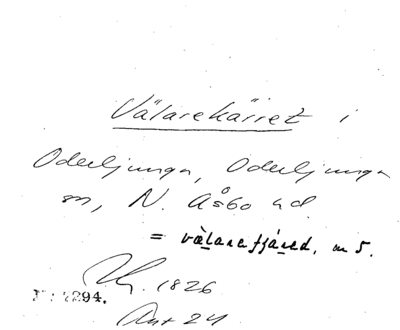 Välarekärret i
Oderljunga, Oderljunga
sn, N. Åsbo hd
= välarefjäred, m 5.
1826
294.
Ant 24